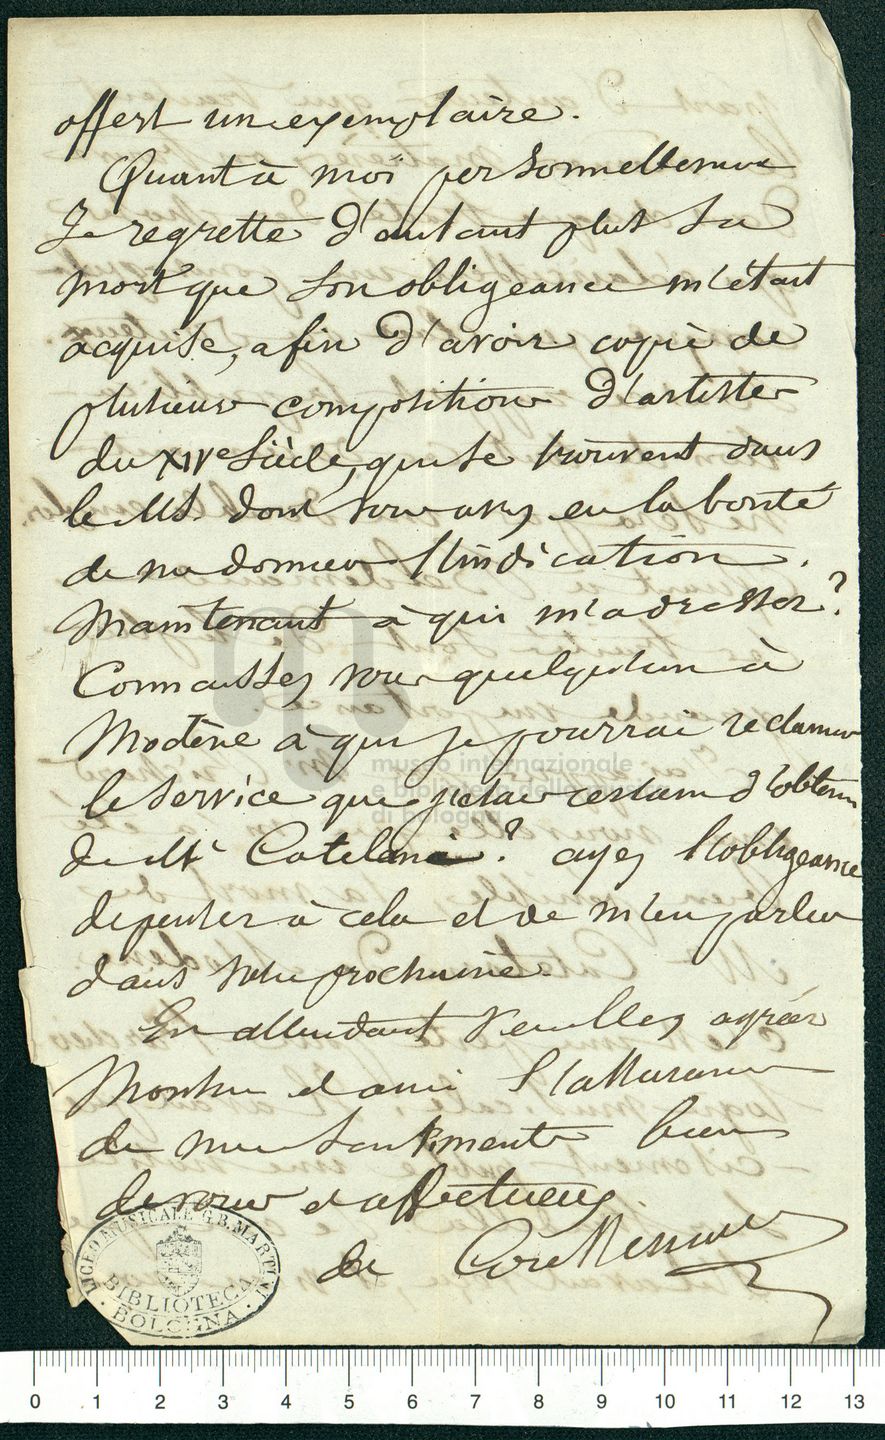 offert un exemplaire.
Quant à moi personnellement
Je regrette d'autant plus sa
mort que son obligeance m'était
acquise, afin d'avoir copie de
plusieurs compositions d'artistes
du XIVe Siècle, qui se trouvent dans
le MS. dont vous avez eu la bonté
de me donner l'indication.
Maintenant à qui m'adresser?
Connaissez vous quelqu'un à
Modène à qui je pourrai réclamer
le service que j'étais certain d'obtenir
de Mr Catelani? ayez l'obligeance
de penser à cela et de m'en parler
dans votre prochaine.
En attendant veuillez agréer
Monsieur et ami l'assurance
de mes sentiments bien
dévoués et affectueux.
de Coussemaker
LICEO MUSICALE G.B. MARTINI
BIBLIOTECA
BOLOGNA
museo internazionale
e biblioteca della musica
di bologna
0 1 2 3 4 5 6 7 8 9 10 11 12 13